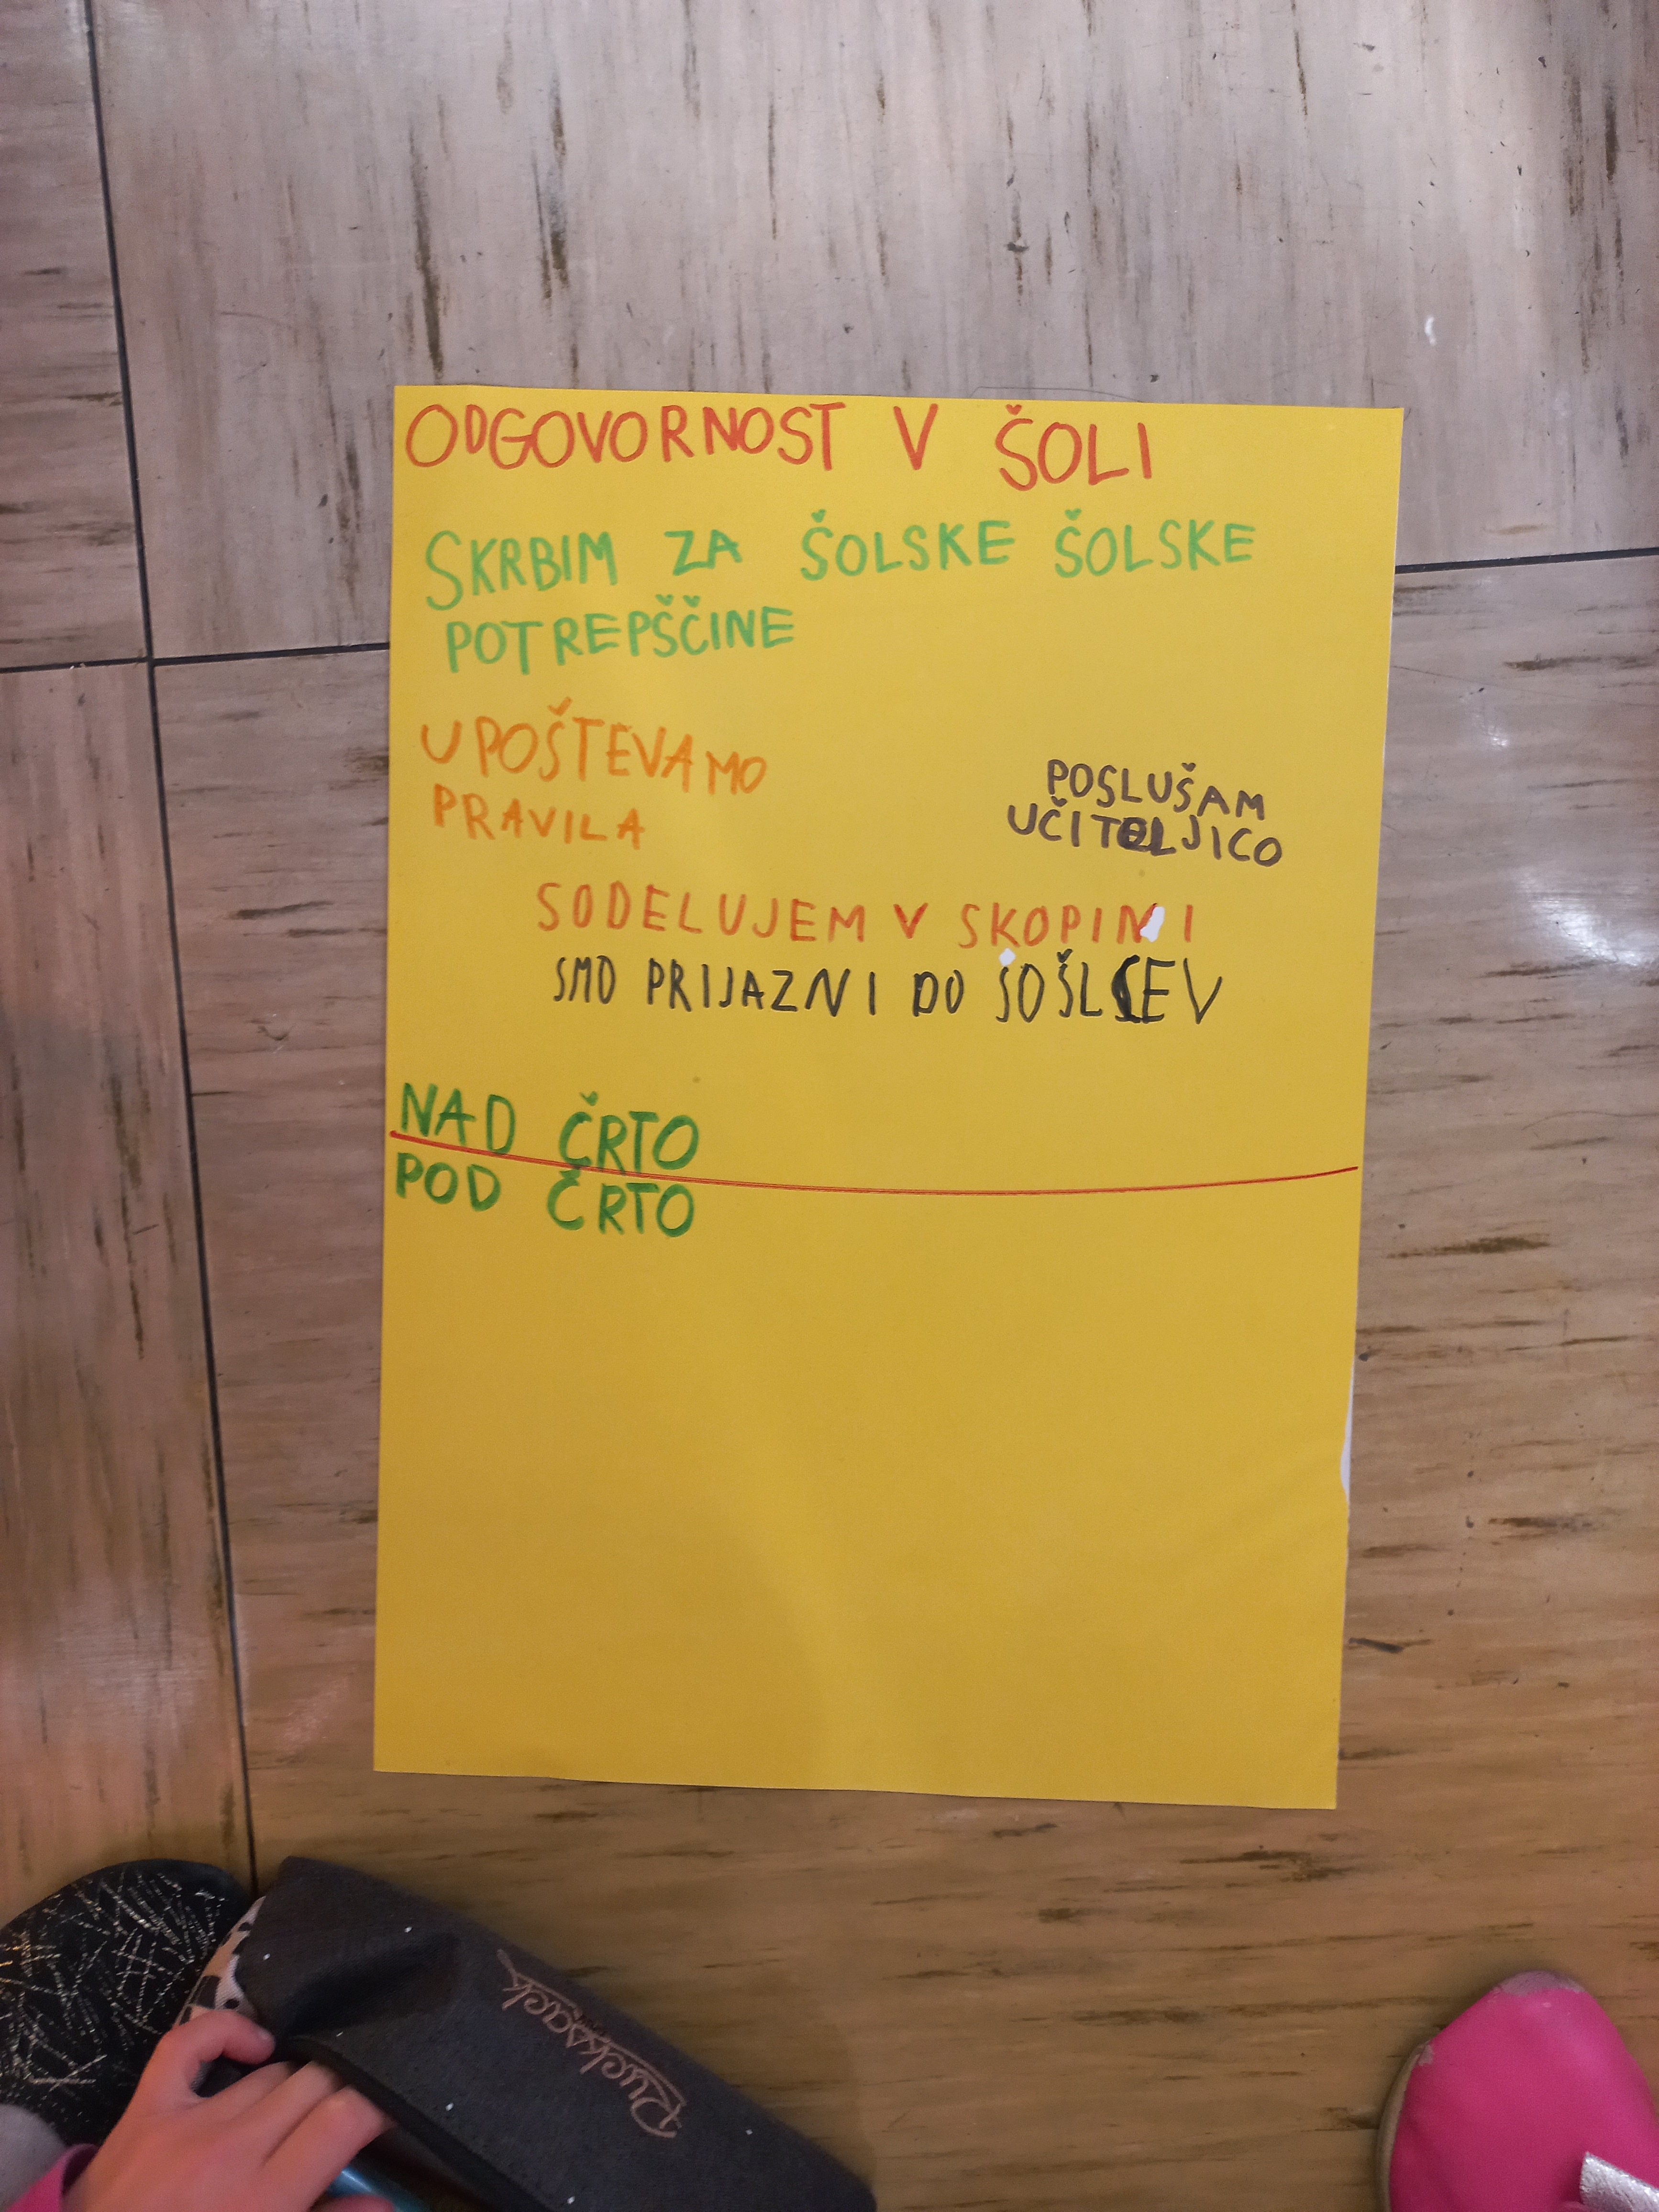 ODGOVORNOST V ŠOLI
SKRBIM ZA ŠOLSKE ŠOLSKE
POTREPŠČINE
UPOŠTEVAMO
PRAVILA
POSLUŠAM
UČITELJICO
SODELUJEM V SKOPINI
SMO PRIJAZNI DO SOŠLCEV
NAD ČRTO
POD ČRTO
Rucksack